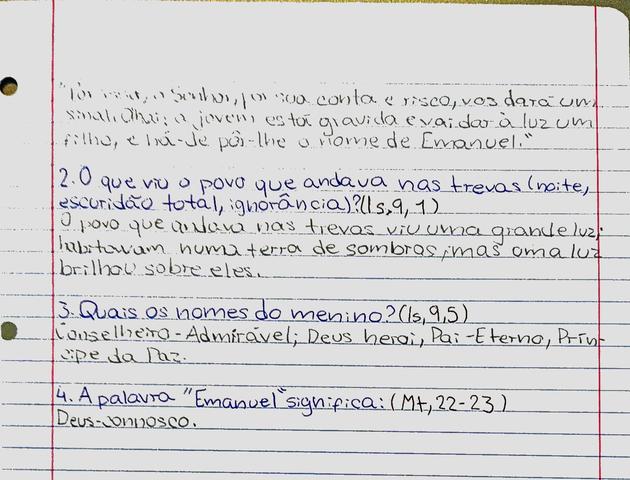 "Por isso, o Senhor, por sua conta e risco, vos dará um
sinal. Olhai: a jovem está grávida e vai dar à luz um
filho, e há-de pôr-lhe o nome de Emanuel."
2. O que viu o povo que andava nas trevas (noite,
escuridão total, ignorância)? (Is, 9, 1)
O povo que andava nas trevas viu uma grande luz;
habitavam numa terra de sombras, mas uma luz
brilhou sobre eles.
3. Quais os nomes do menino? (Is, 9,5)
Conselheiro-Admirável; Deus herói, Pai-Eterno, Prín-
cipe da Paz.
4. A palavra "Emanuel" significa: (Mt, 22-23)
Deus-connosco.